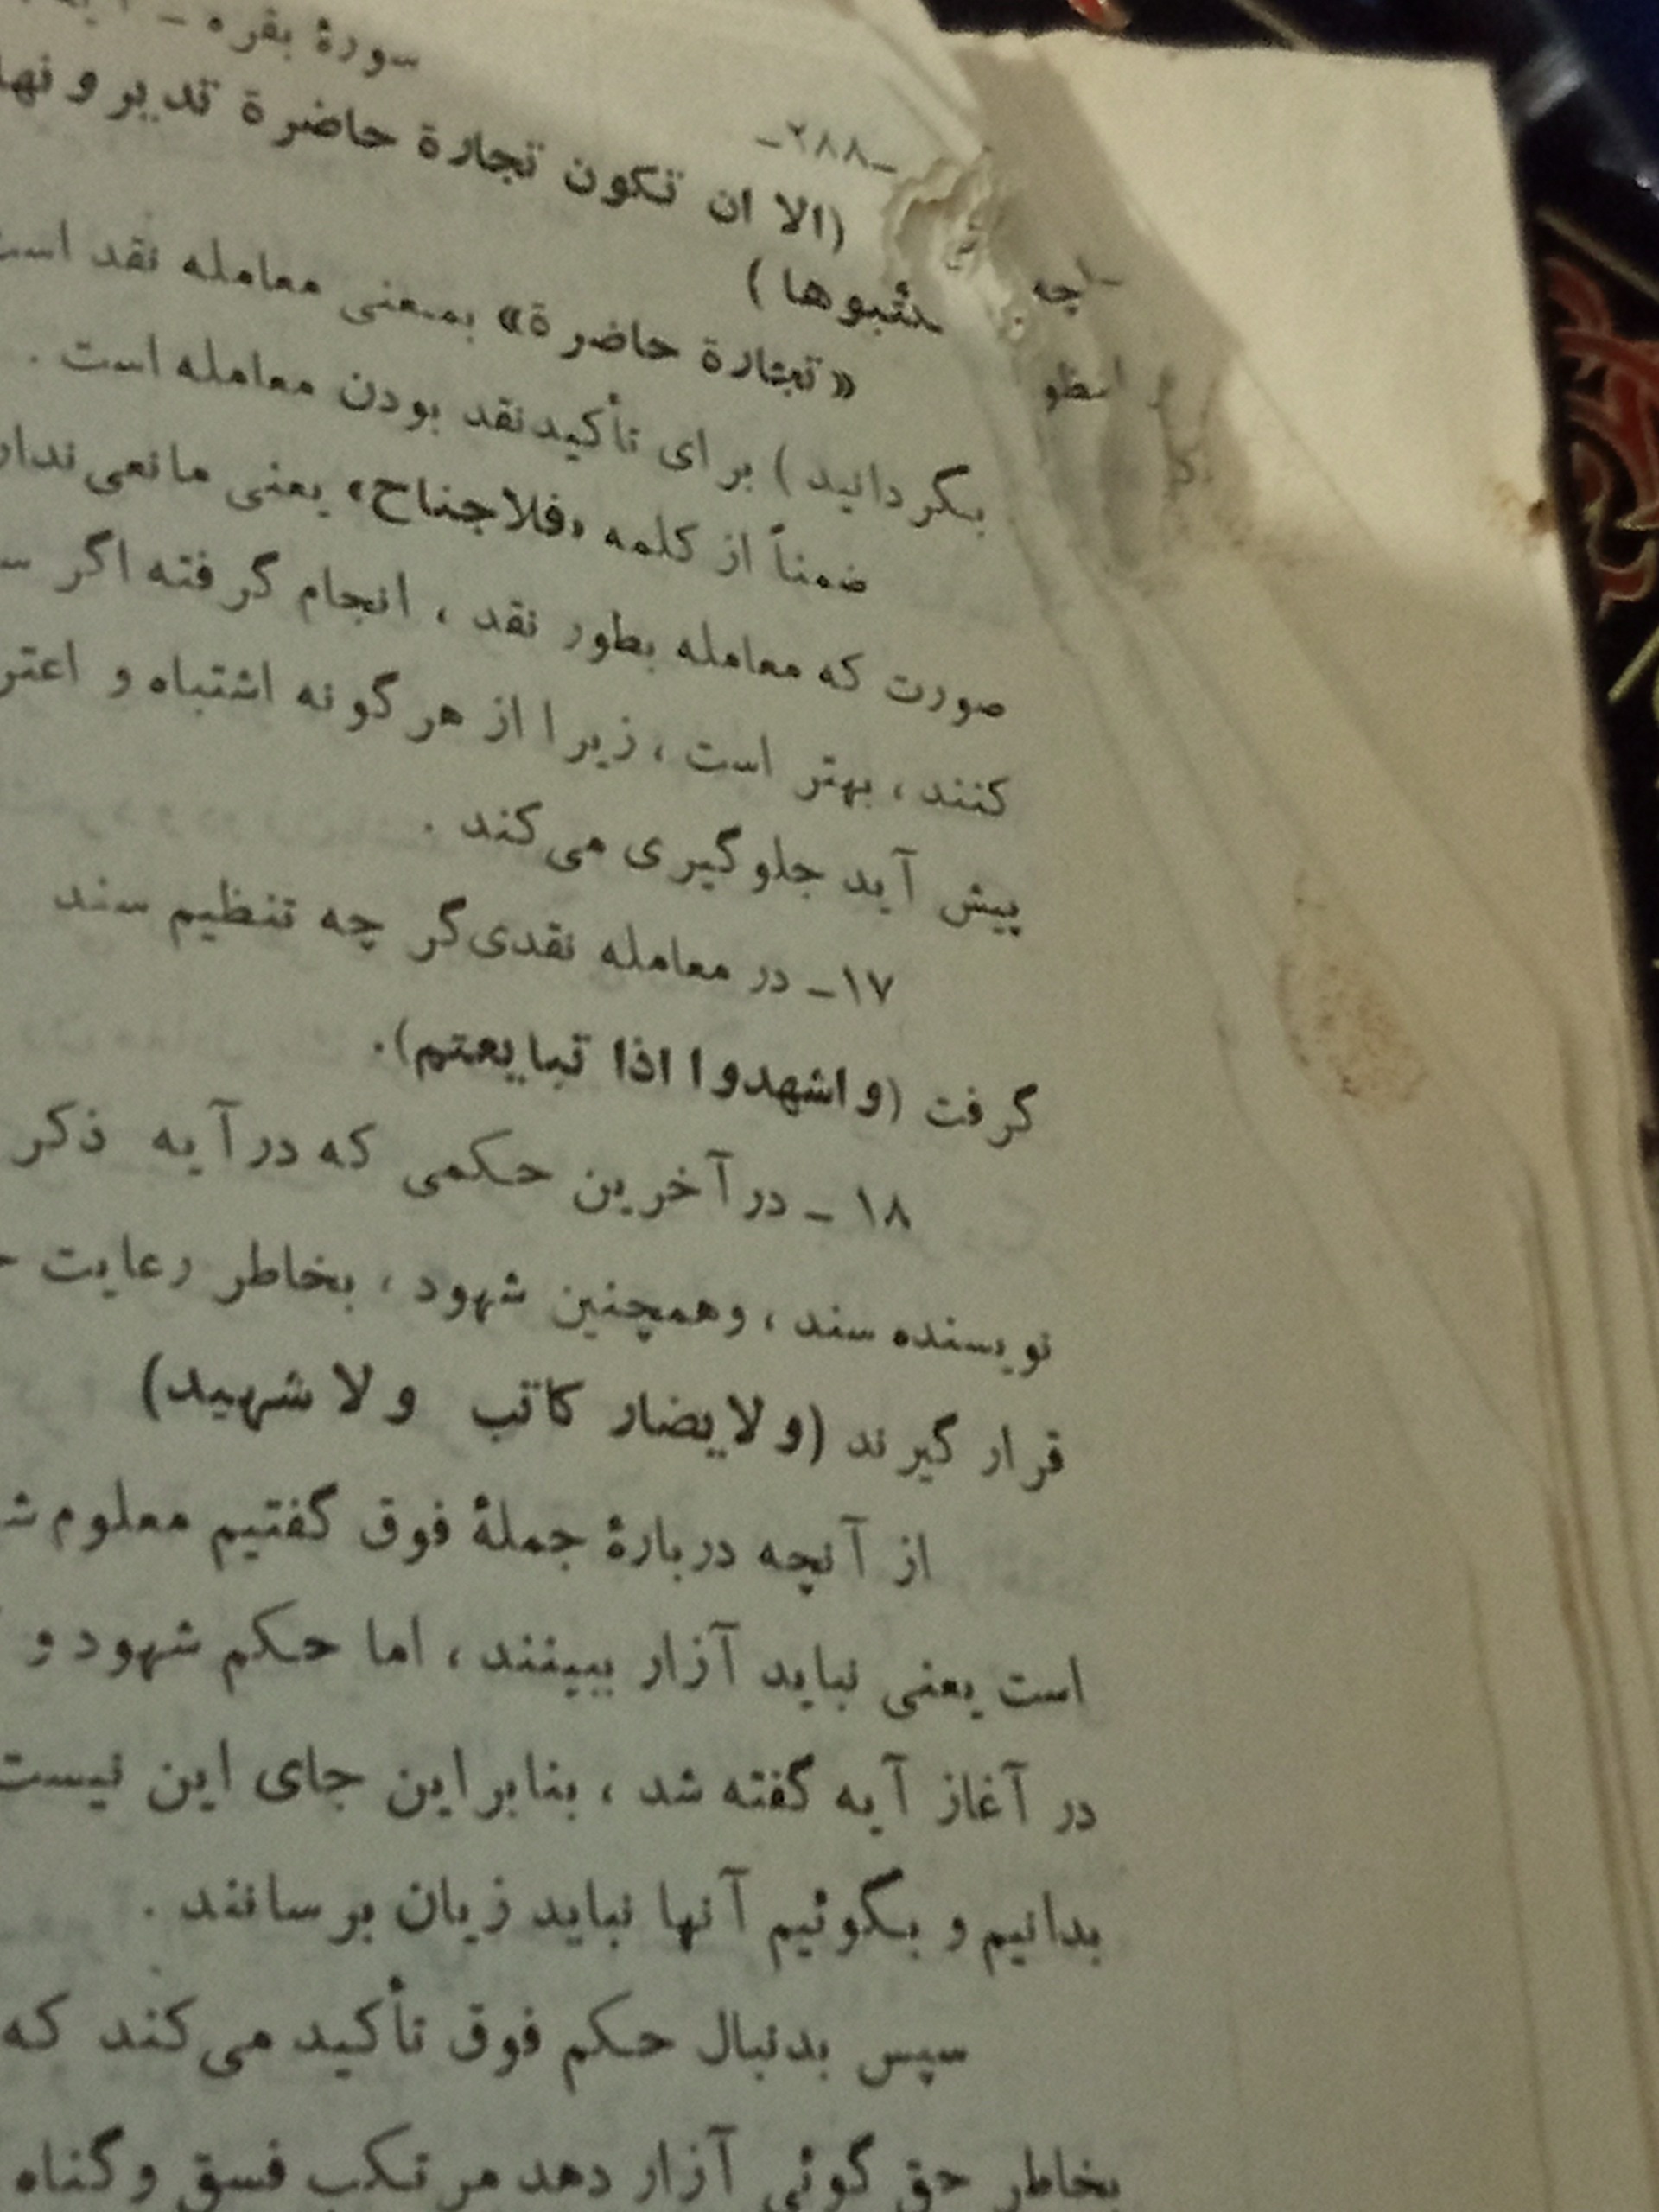 سورهٔ بقره -
-۲۸۸-
(الا ان تکون تجارة حاضرة تدیر و نها
تکتبوها )
«تجارة حاضرة» بمعنی معامله نقد است
بگردانید ) برای تأکید نقد بودن معامله است .
ضمناً از کلمه «فلاجناح» یعنی مانعی ندار
صورت که معامله بطور نقد ، انجام گرفته اگر
کنند ، بهتر است ، زیرا از هر گونه اشتباه و اعتر
پیش آید جلوگیری می‌کند .
۱۷- در معامله نقدی گر چه تنظیم سند
گرفت (و اشهدوا اذا تبایعتم).
۱۸ - در آخرین حکمی که در آیه ذکر
نویسنده سند ، وهمچنین شهود ، بخاطر رعایت
قرار گیرند (و لایضار کاتب و لا شهید)
از آنچه دربارهٔ جملهٔ فوق گفتیم معلوم
است یعنی نباید آزار ببینند ، اما حکم شهود و
در آغاز آیه گفته شد ، بنابراین جای این نیست
بدانیم و بگوئیم آنها نباید زیان برسانند .
سپس بدنبال حکم فوق تأکید می‌کند که
بخاطر حق گوئی آزار دهد مرتکب فسق و گناه
چه